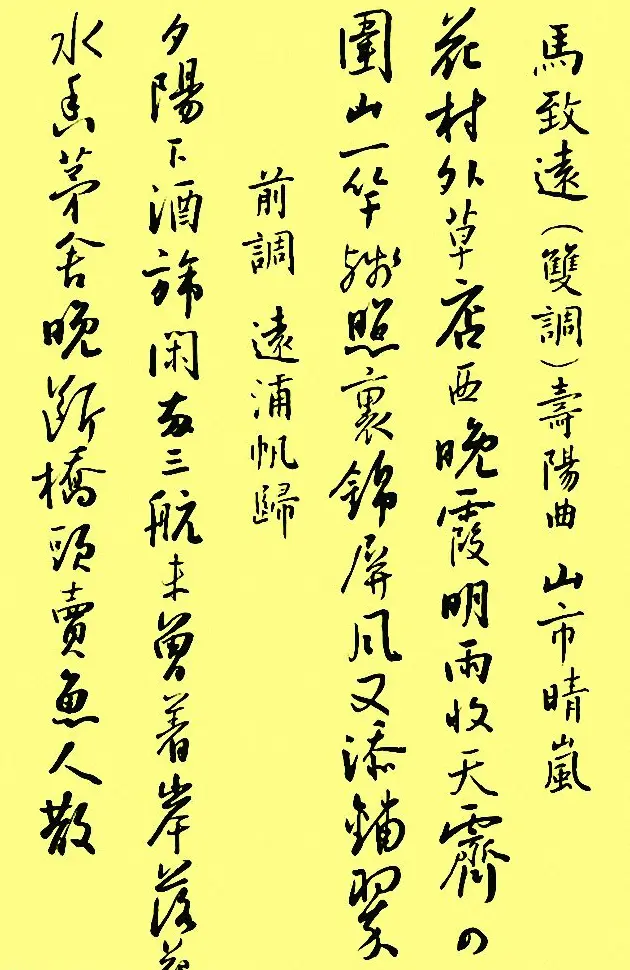 馬致遠（雙調）壽陽曲 山市晴嵐
花村外草店西晚霞明雨收天霽四
圍山一竿殘照裏錦屏風又添鋪翠
前調 遠浦帆歸
夕陽下酒旆閑兩三航未曾着岸落花
水香茅舍晚斷橋頭賣魚人散